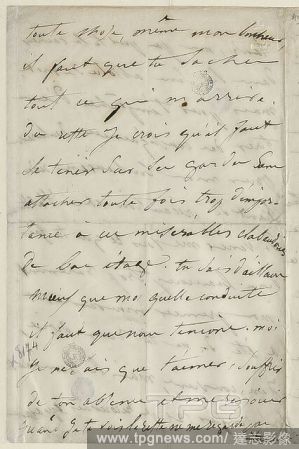 toute chose, même mon bonheur,
il faut que tu saches
tout ce qui m'arrive.
du reste je crois qu'il faut
se tenir sur ses gardes sans
attacher toute fois trop d'impor-
tance à ces misérables clabauderies
de bas étage. tu sais d'ailleurs
mieux que moi quelle conduite
il faut que nous tenions. moi
je ne sais que t'aimer, souffrir
de ton absence et me réjouir
quand je te vois le reste ne me regarde pas
www.tpgnews.com/ 達志影像